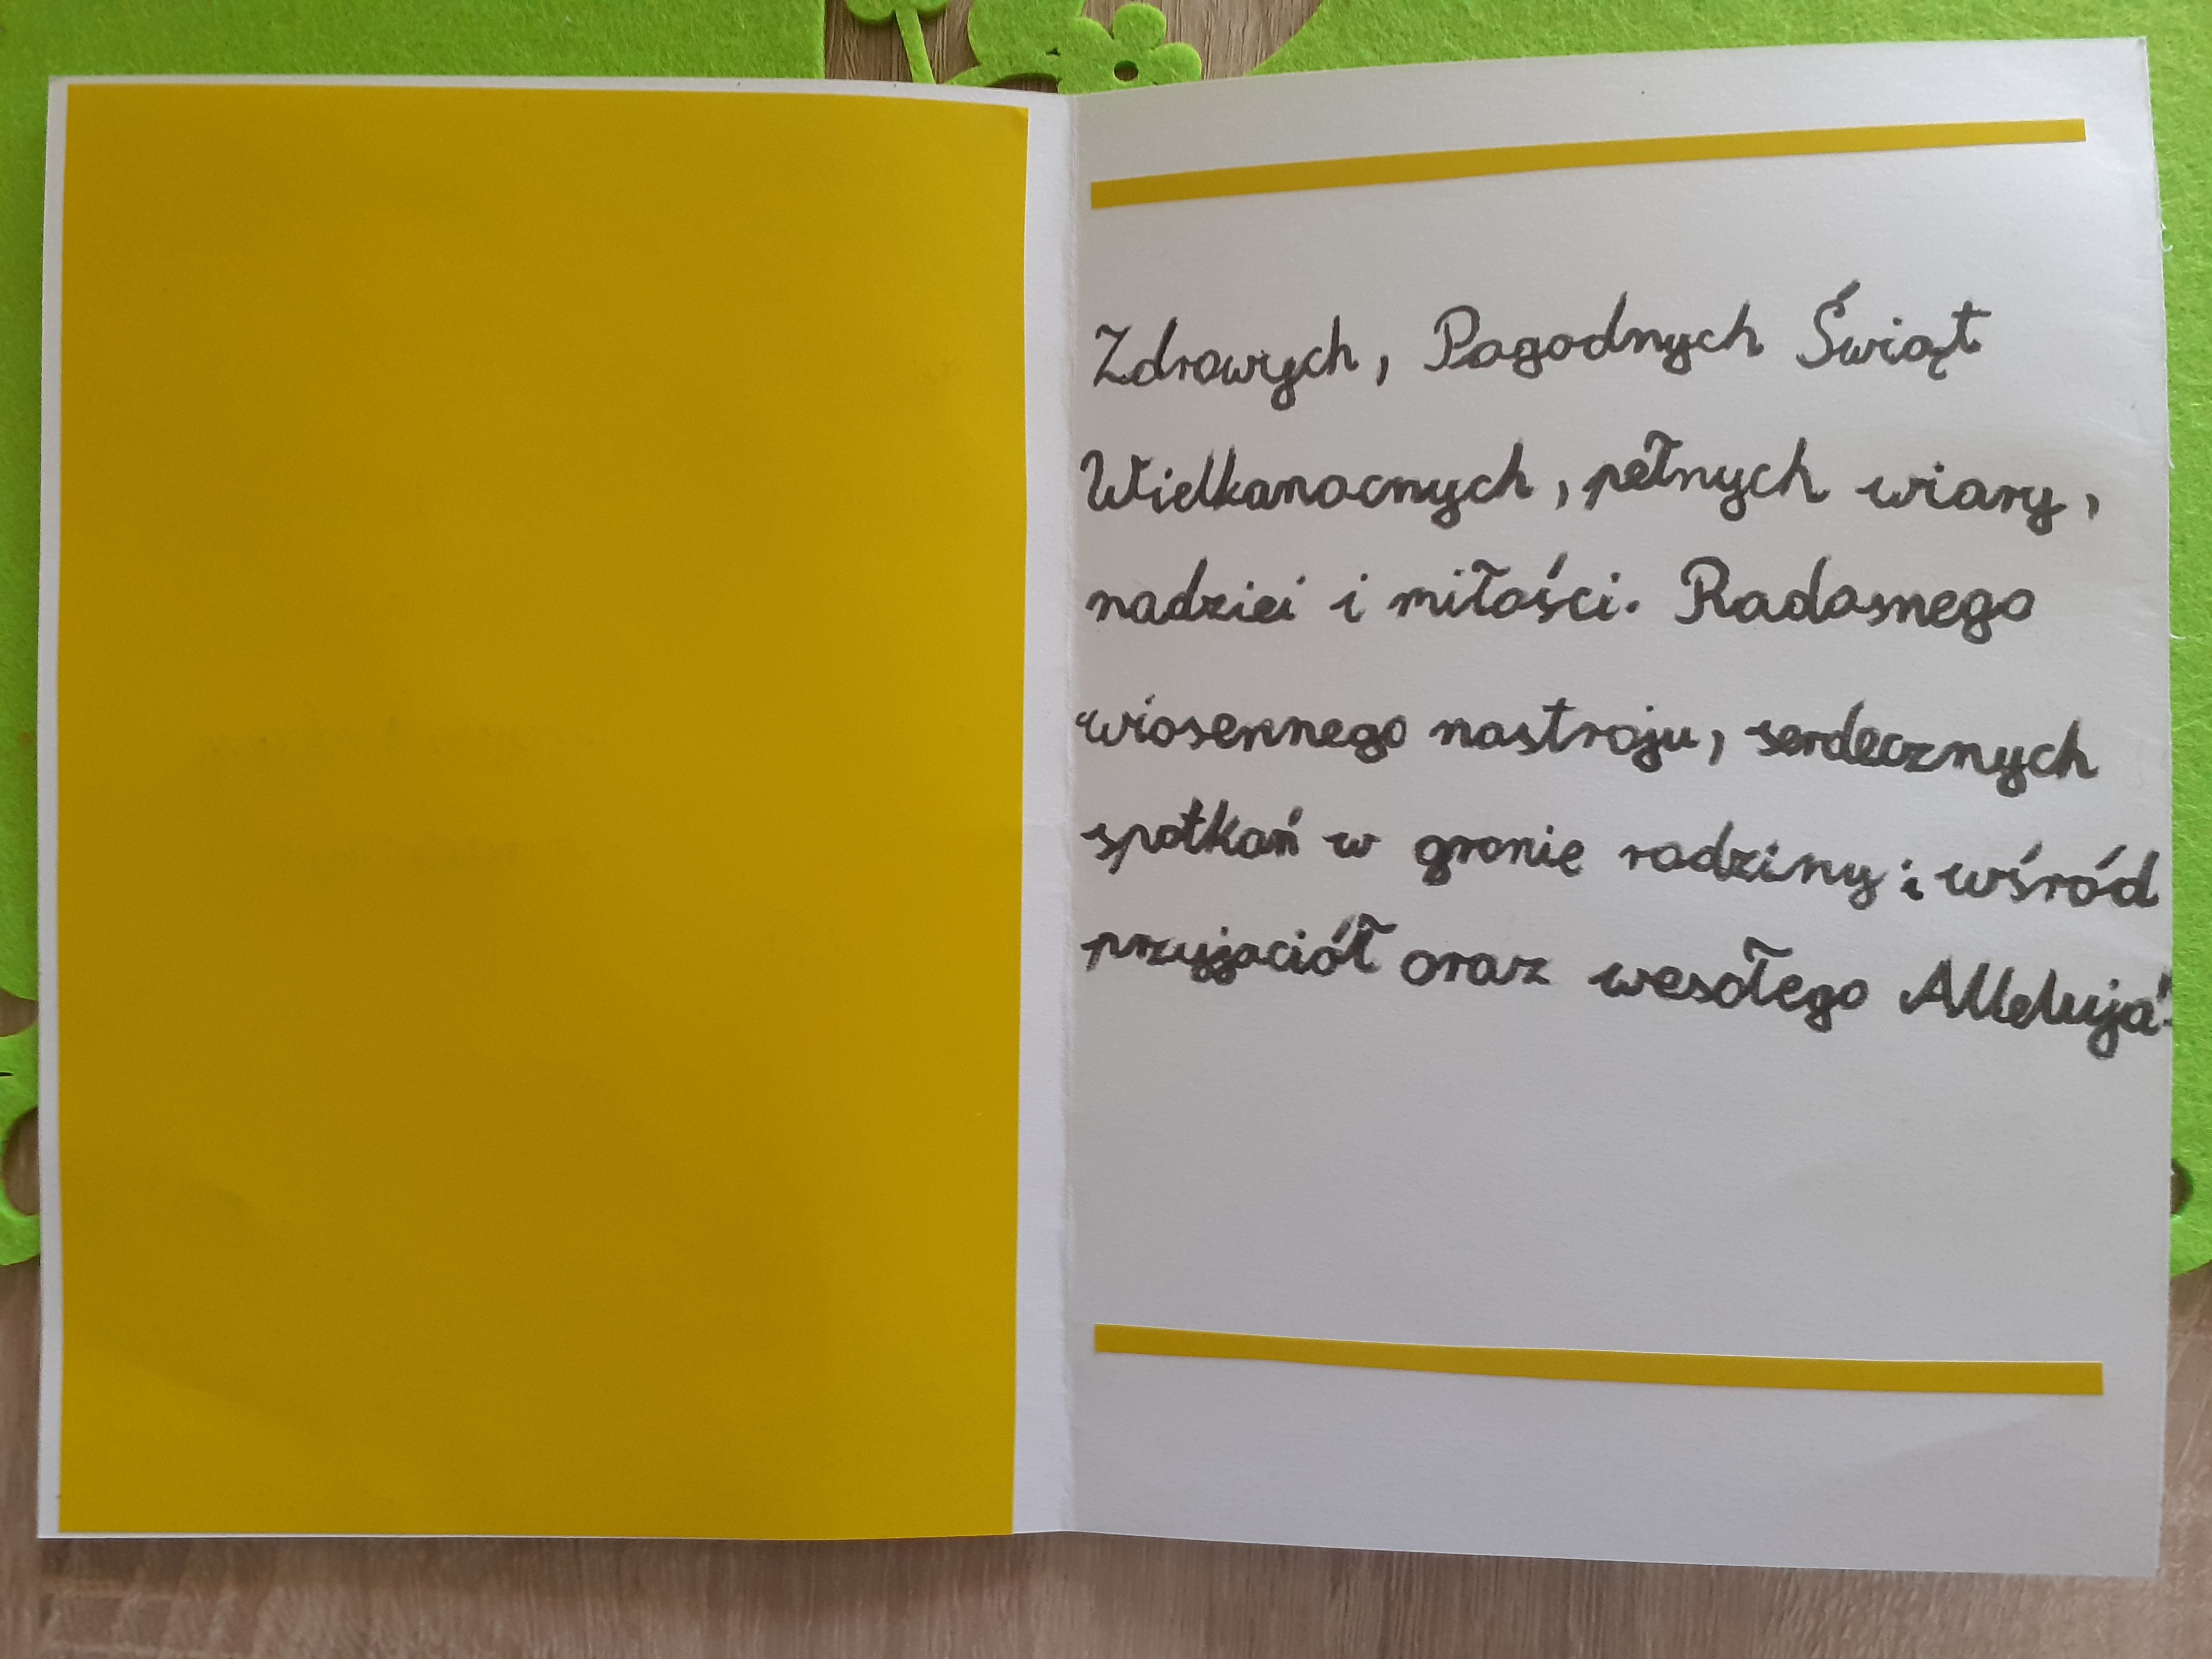 Zdrowych, Pogodnych Świąt
Wielkanocnych, pełnych wiary,
nadziei i miłości. Radosnego
wiosennego nastroju, serdecznych
spotkań w gronie rodziny i wśród
przyjaciół oraz wesołego Alleluja!